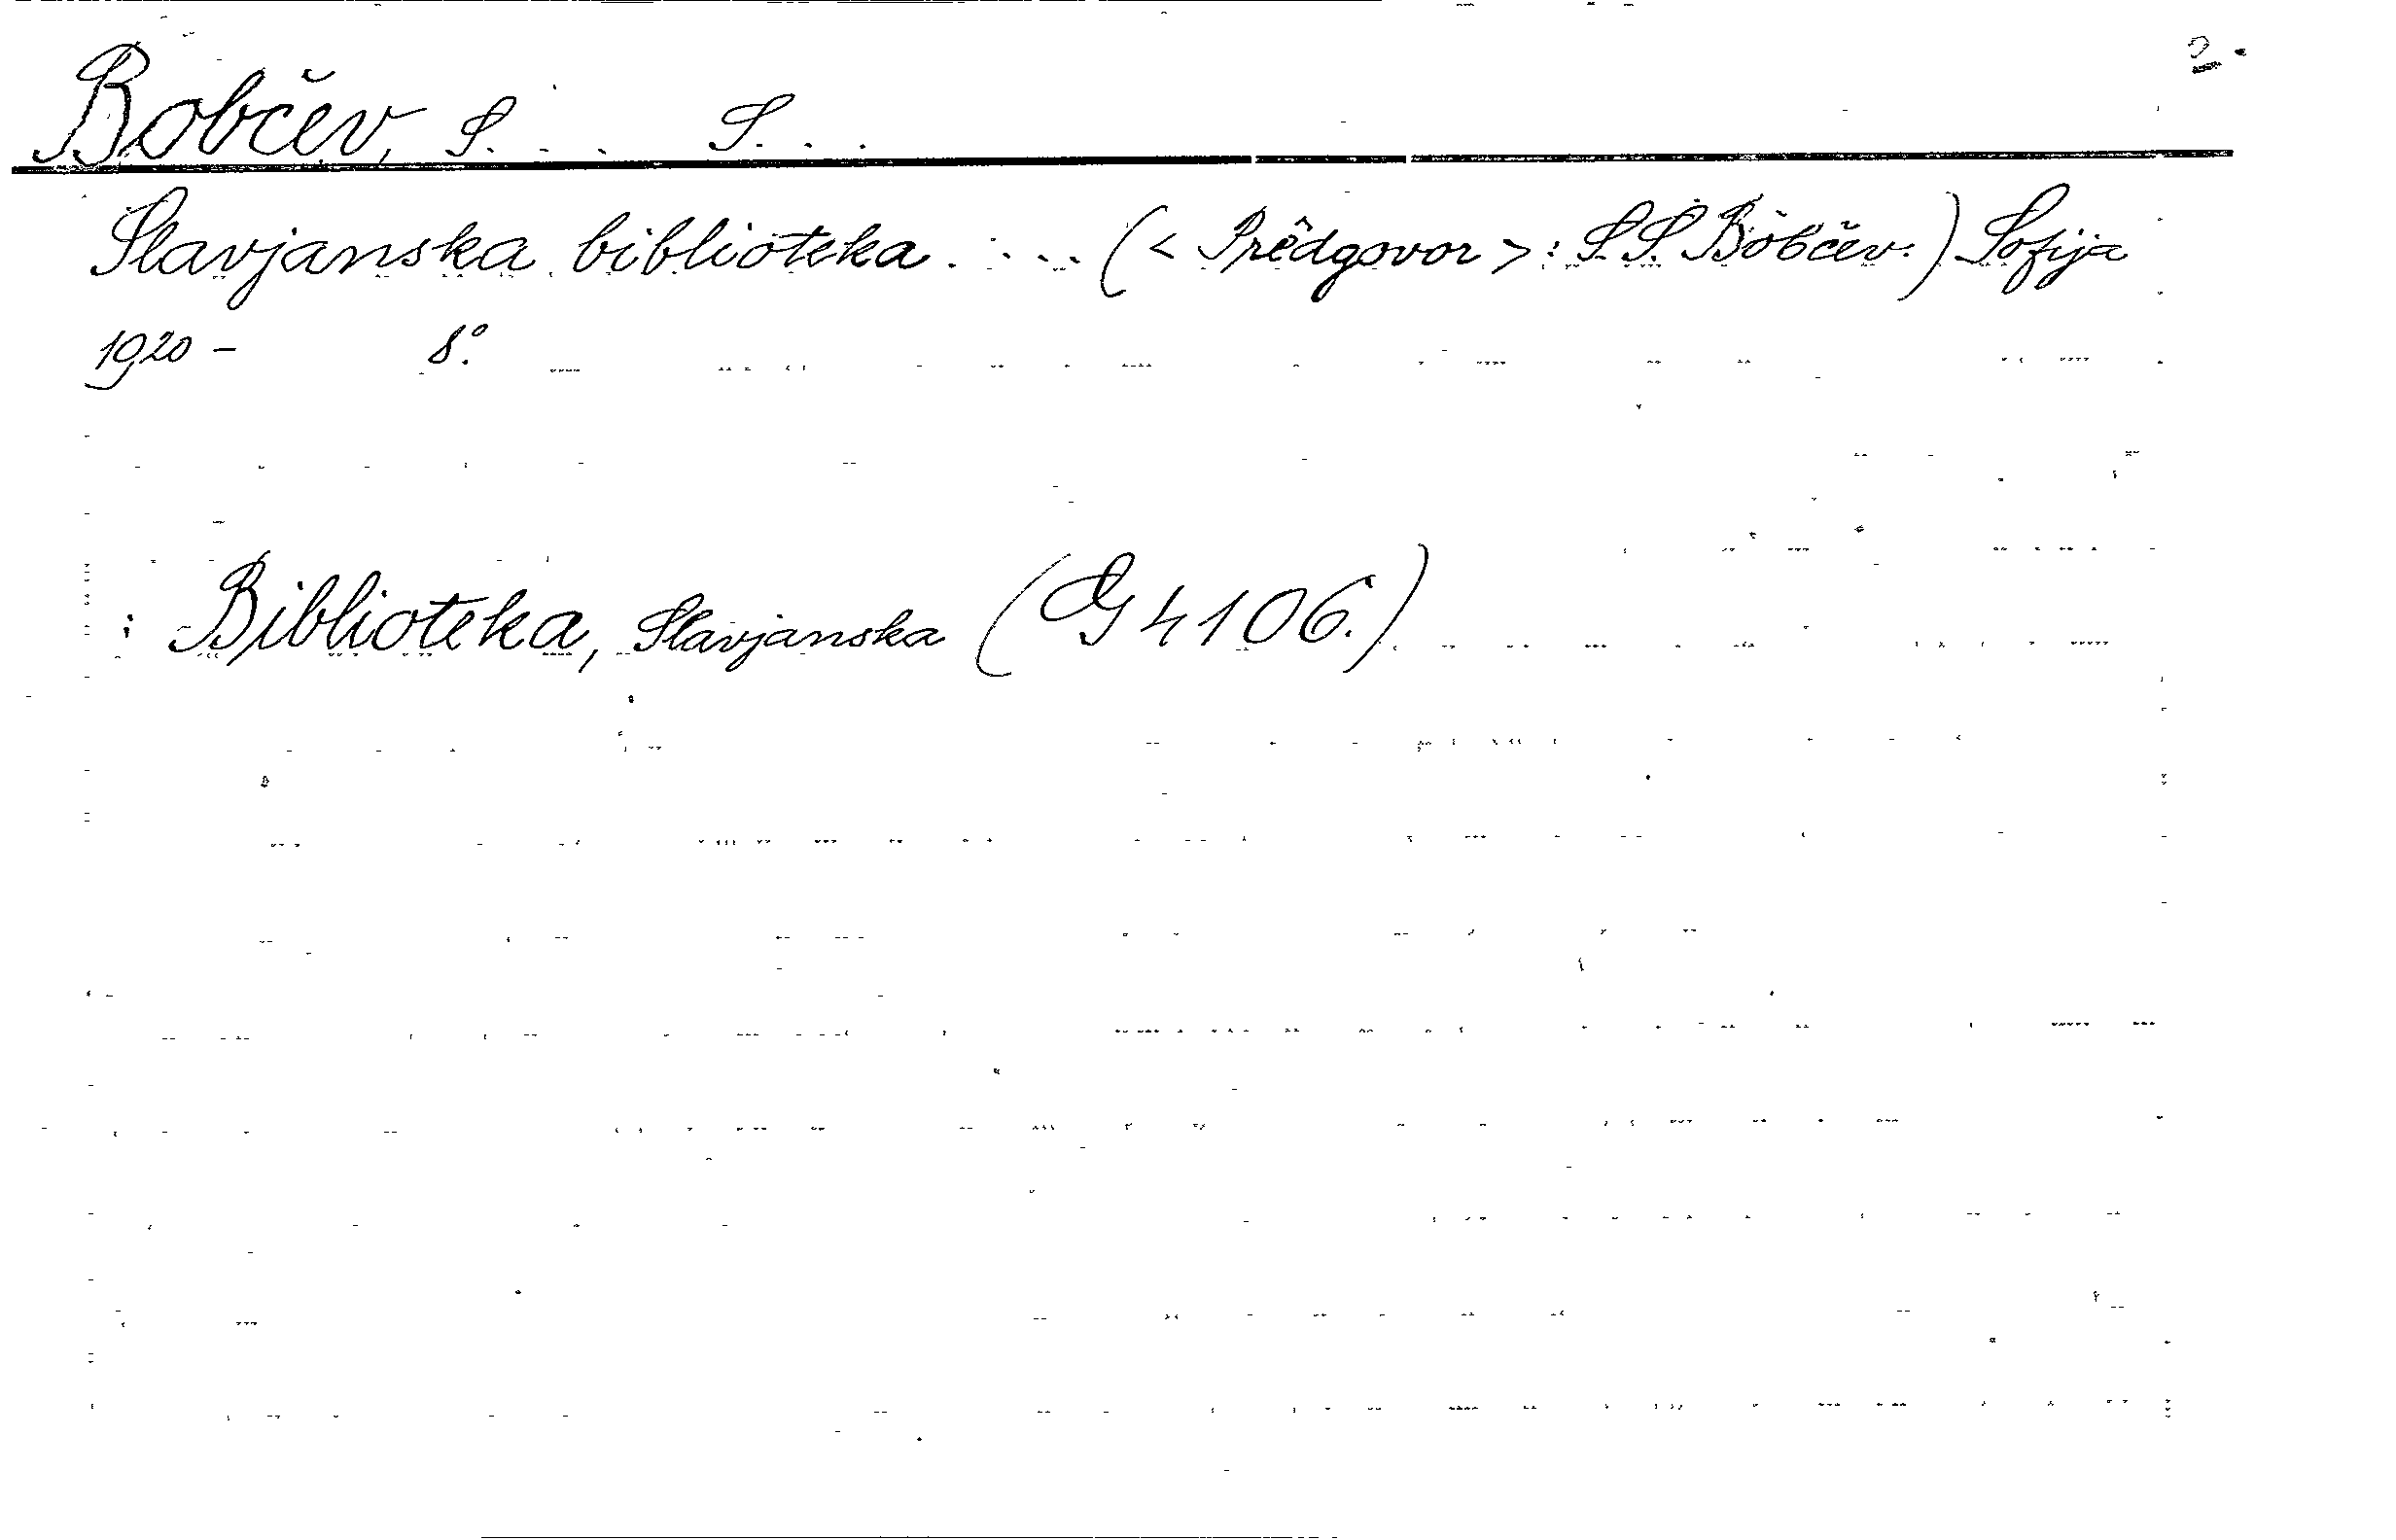 2.
Bobčev, S. . . S. . .
Slavjanska biblioteka . . . . (< Prêdgovor > : S. S. Bobčev.) Sofija
1920 – 8°.
: Biblioteka, Slavjanska (G 4106.)